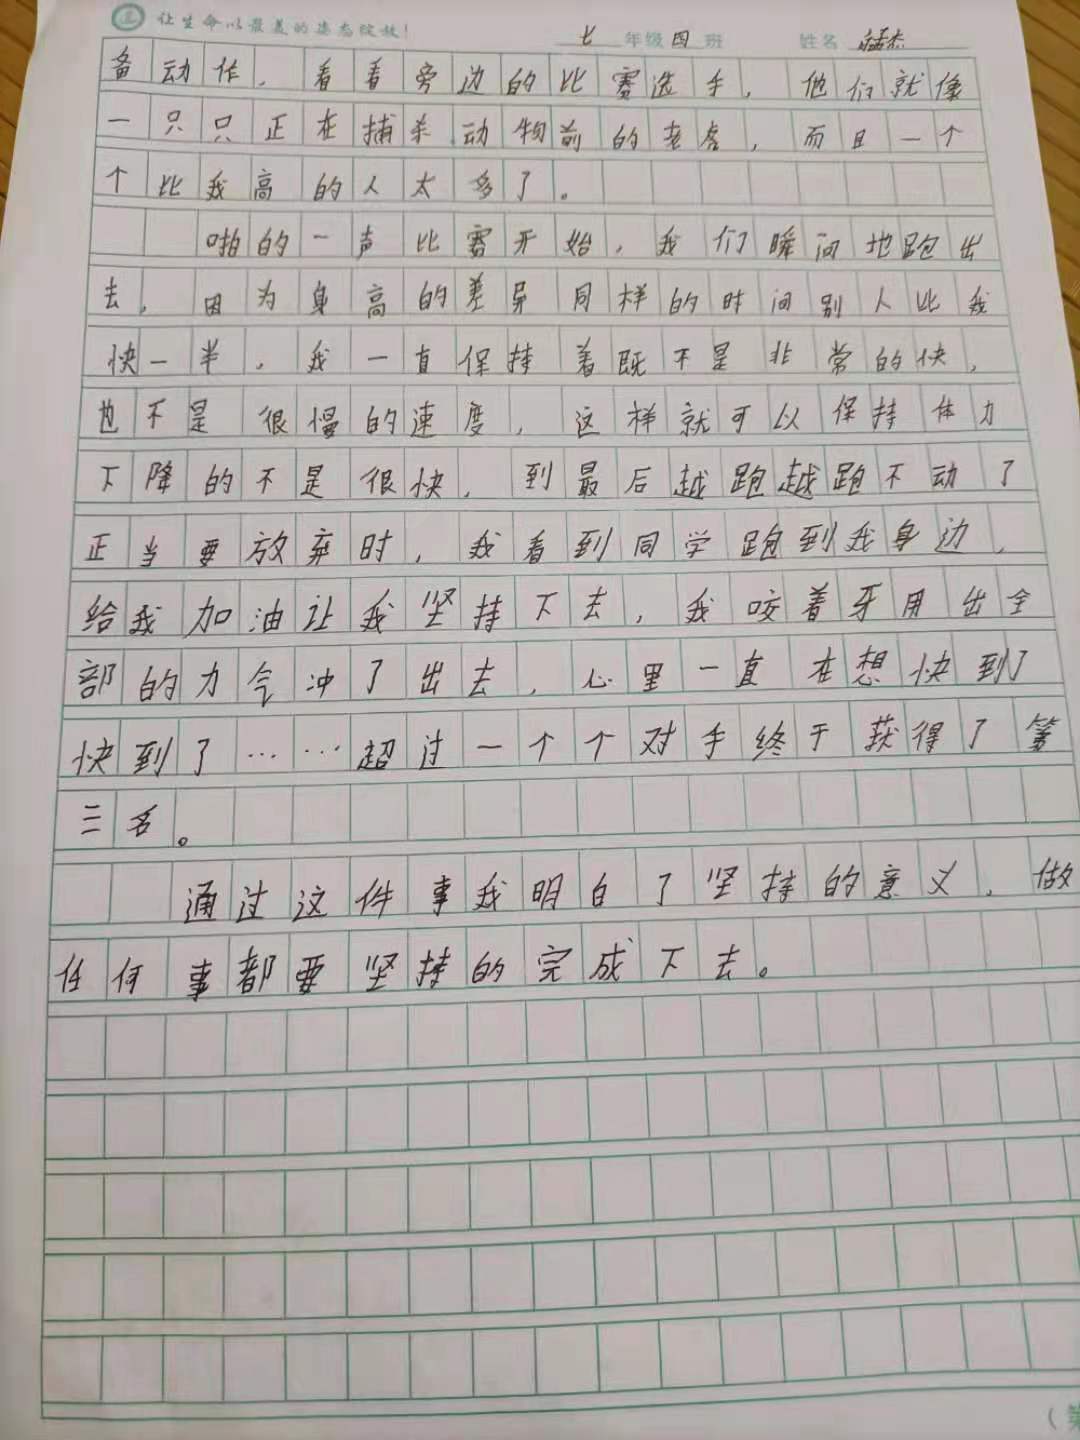 让生命以最美的姿态绽放!
七 年级 四 班 姓名
备动作，看看旁边的比赛选手，他们就像
一只只正在捕杀动物前的老虎，而且一个
个比我高的人太多了。
啪的一声比赛开始，我们瞬间地跑出
去，因为身高的差异同样的时间别人比我
快一半，我一直保持着既不是非常的快，
也不是很慢的速度，这样就可以保持体力
下降的不是很快，到最后越跑越跑不动了
正当要放弃时，我看到同学跑到我身边，
给我加油让我坚持下去，我咬着牙用出全
部的力气冲了出去，心里一直在想快到了
快到了……超过一个个对手终于获得了第
三名。
通过这件事我明白了坚持的意义，做
任何事都要坚持的完成下去。